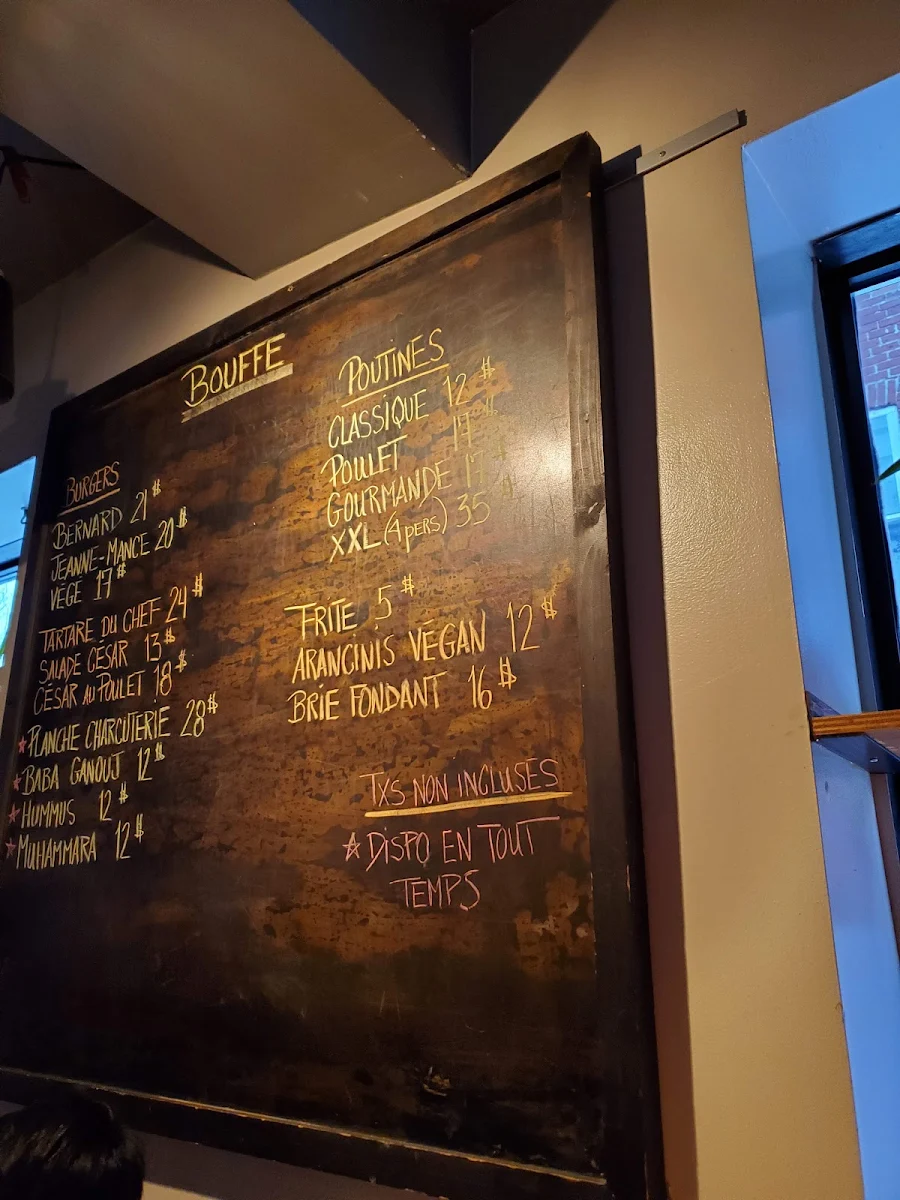 BOUFFE
BURGERS
BERNARD 21$
JEANNE-MANCE 20$
VÉGÉ 17$
TARTARE DU CHEF 24$
SALADE CÉSAR 13$
CÉSAR AU POULET 18$
★ PLANCHE CHARCUTERIE 28$
★ BABA GANOUJ 12$
★ HUMMUS 12$
★ MUHAMMARA 12$
POUTINES
CLASSIQUE 12$
POULET 17$
GOURMANDE 17$
XXL (4 pers) 35$
FRITE 5$
ARANCINIS VÉGAN 12$
BRIE FONDANT 16$
TXS NON INCLUSES
☆ DISPO EN TOUT
TEMPS